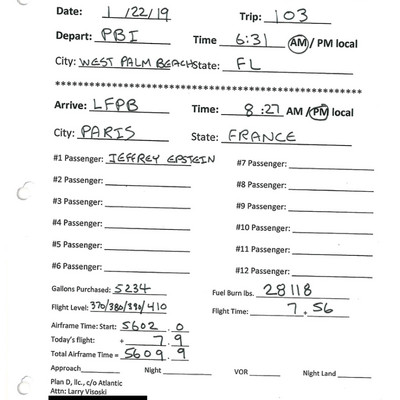 Date: 1/22/19 Trip: 103
Depart: PBI Time 6:31 AM / PM local
City: WEST PALM BEACH State: FL
********************************************
Arrive: LFPB Time: 8:27 AM / PM local
City: PARIS State: FRANCE
#1 Passenger: JEFFREY EPSTEIN #7 Passenger:
#2 Passenger: #8 Passenger:
#3 Passenger: #9 Passenger:
#4 Passenger: #10 Passenger:
#5 Passenger: #11 Passenger:
#6 Passenger: #12 Passenger:
Gallons Purchased: 5234 Fuel Burn lbs. 28118
Flight Level: 370/380/390/410 Flight Time: 7.56
Airframe Time: Start: 5602.0
Today's flight: + 7.9
Total Airframe Time = 5609.9
Approach Night VOR Night Land
Plan D, llc., c/o Atlantic
Attn: Larry Visoski